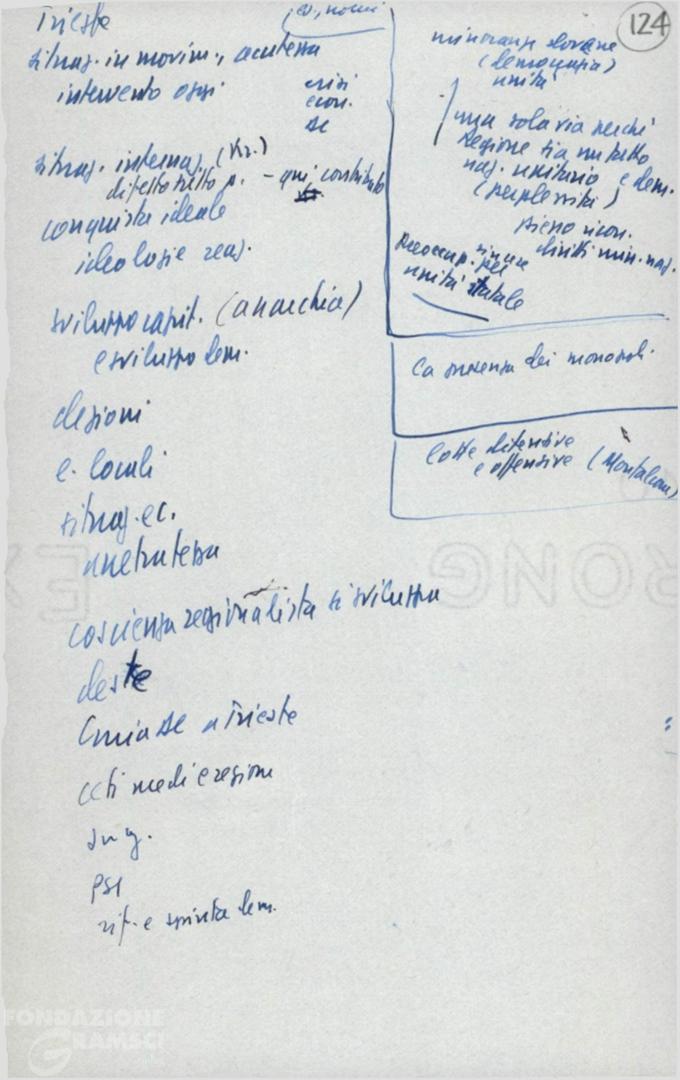 Trieste
(es., nomi
124
situaz. in movim., acutezza
intervento oggi
crisi
econ.
DC
situaz. internaz. (Kr.)
difetto tutto p. - qui contributo
conquista ideale
ideologie reaz.
sviluppo capit. (anarchia)
e sviluppo dem.
elezioni
e. locali
situaz. ec.
arretratezza
coscienza regionalista si sviluppa
destre
DC a Trieste
ceti medi e regione
PSI
rif. e spinta dem.
minoranze slovene
(democrazia)
unità
una sola via perché
Regione sia un fatto
naz. unitario e dem.
(perplessità)
pieno ricon.
diritti min. naz.
preoccup. sincere
per
unità statale
La presenza dei monopoli
Lotte difensive
e offensive (Monfalcone)
FONDAZIONE
GRAMSCI